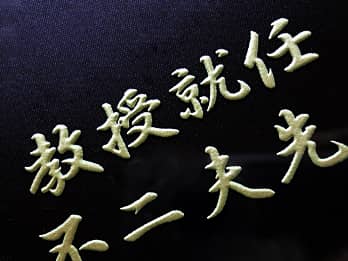 教授就任
不二夫先